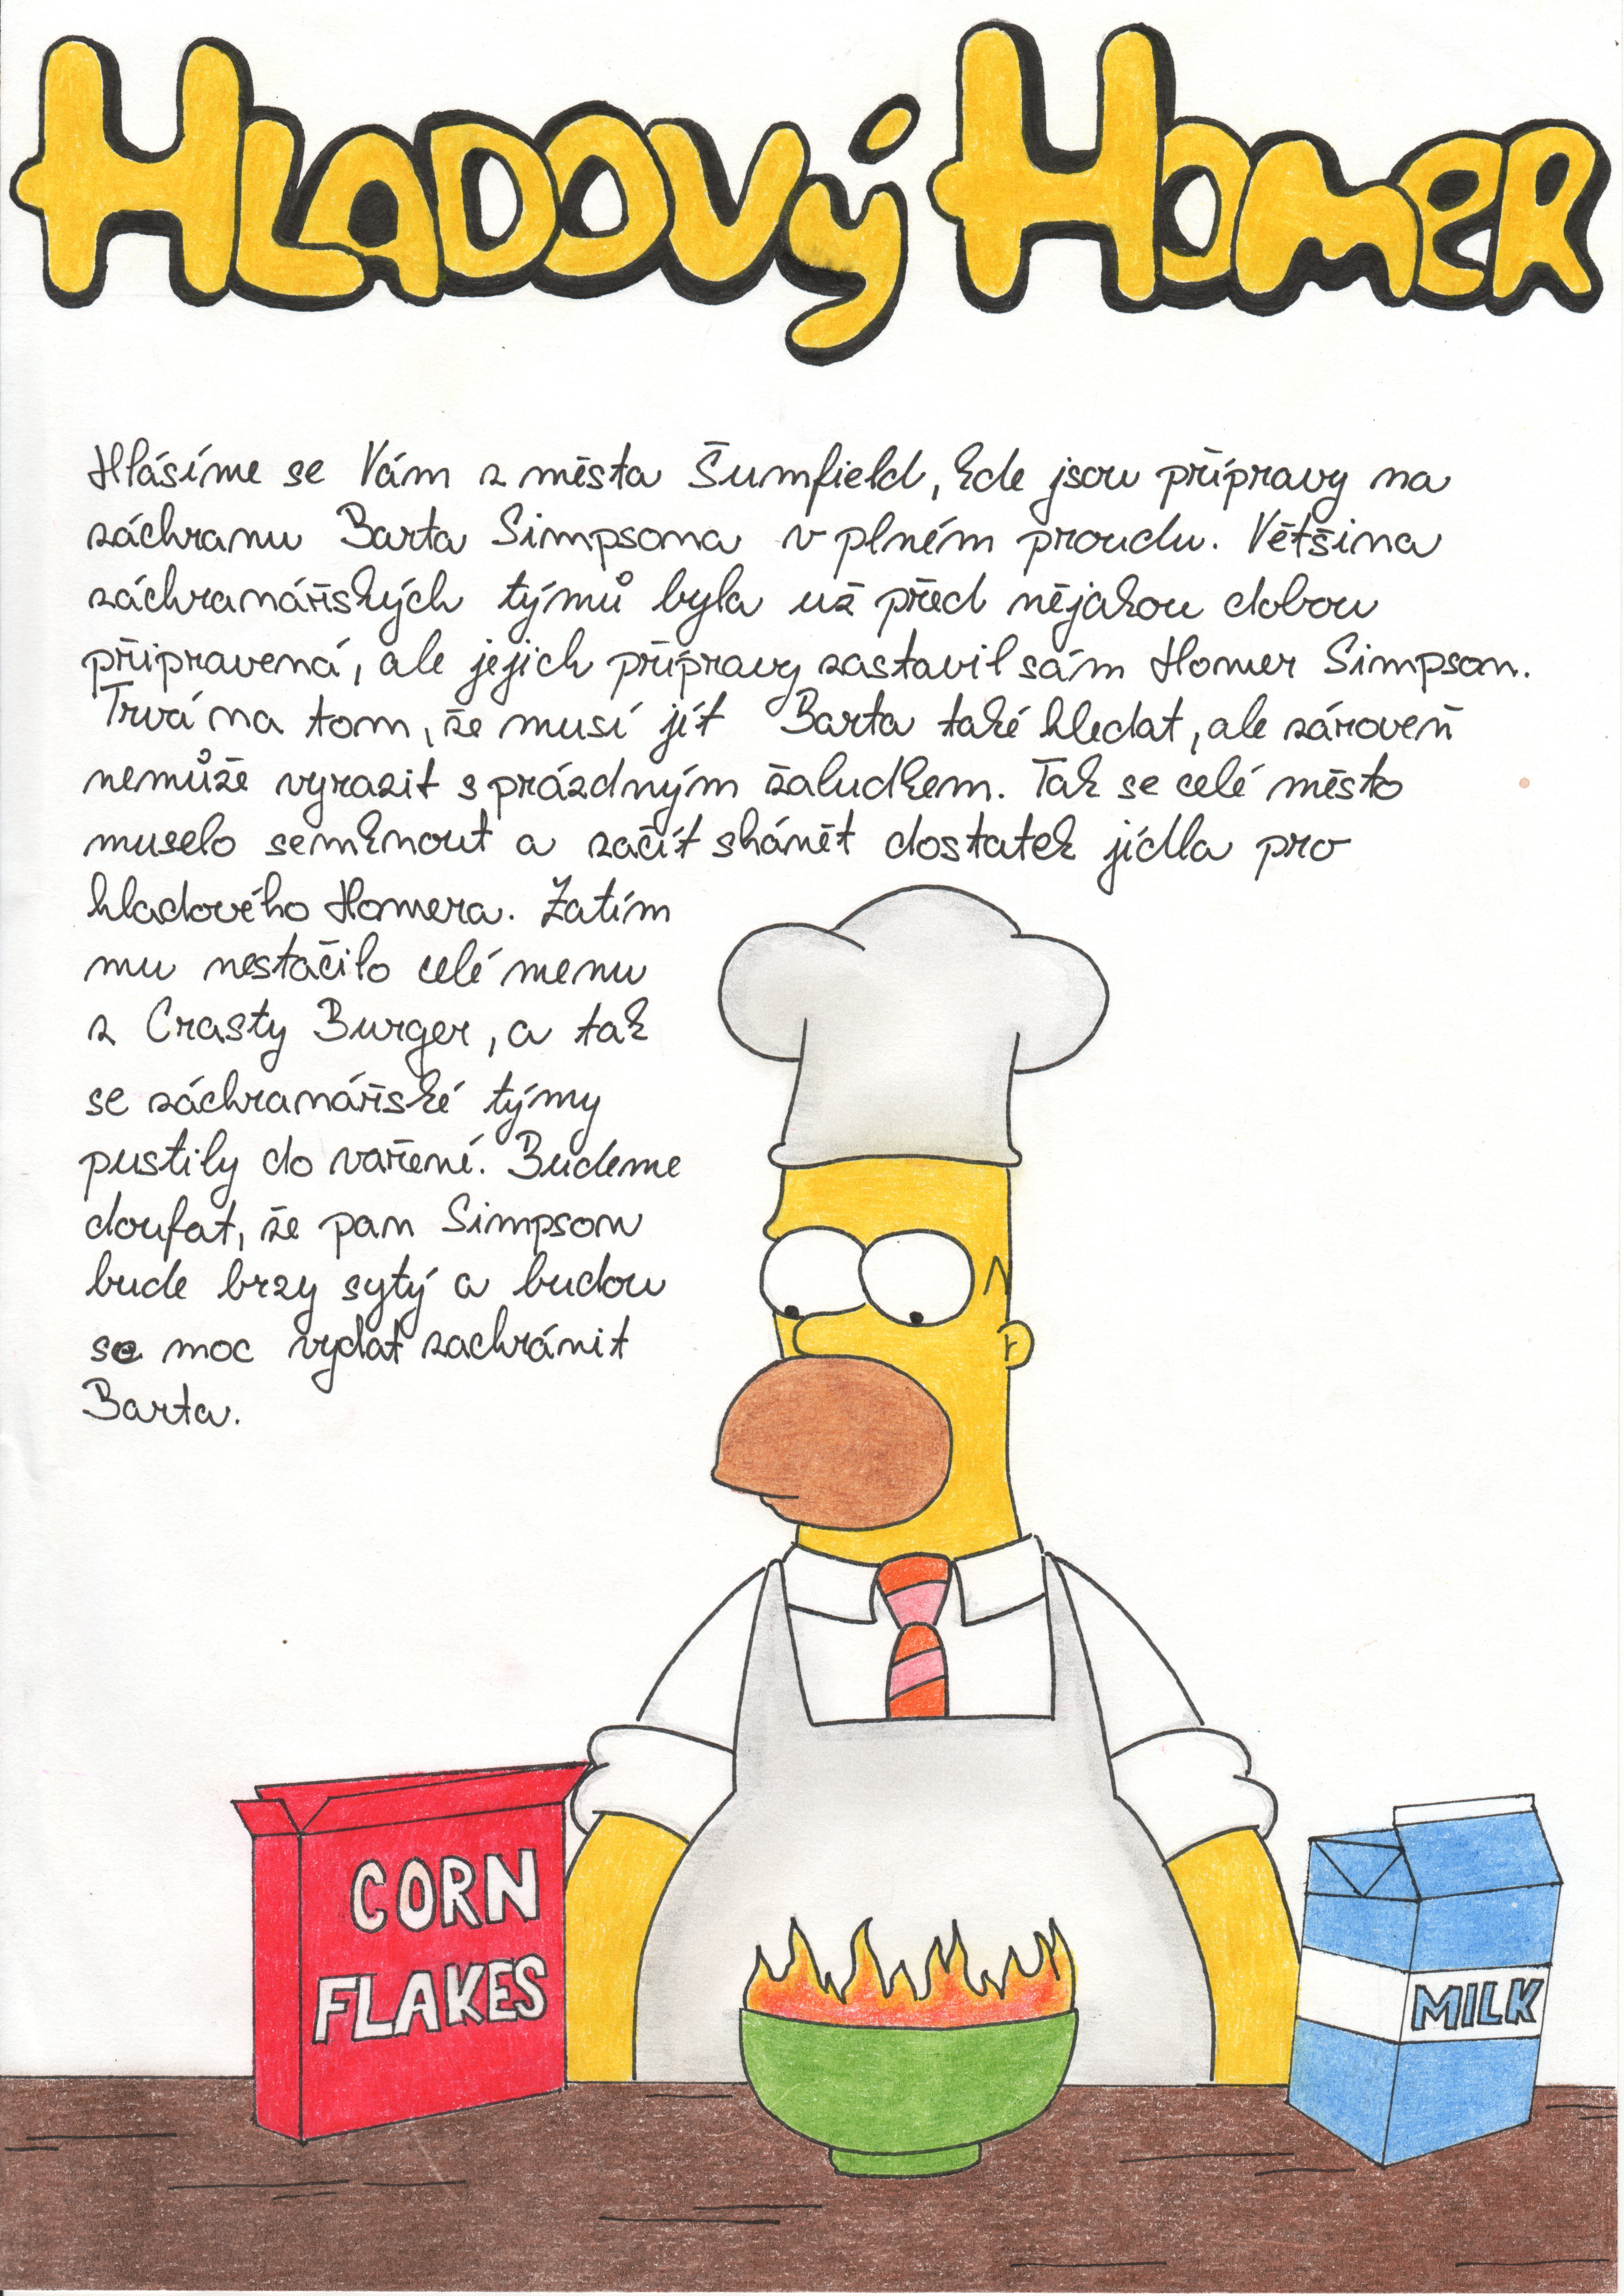 Hladový Homer
Hlásíme se Vám z města Šumfield, kde jsou přípravy na
záchranu Barta Simpsona v plném proudu. Většina
záchranářských týmů byla už před nějakou dobou
připravená, ale jejich přípravy zastavil sám Homer Simpson.
Trvá na tom, že musí jít Barta také hledat, ale zároveň
nemůže vyrazit s prázdným žaludkem. Tak se celé město
muselo semknout a začít shánět dostatek jídla pro
hladového Homera. Zatím
mu nestačilo celé menu
z Crasty Burger, a tak
se záchranářské týmy
pustily do vaření. Budeme
doufat, že pan Simpson
bude brzy sytý a budou
se moc vydat zachránit
Barta.
CORN
FLAKES
MILK